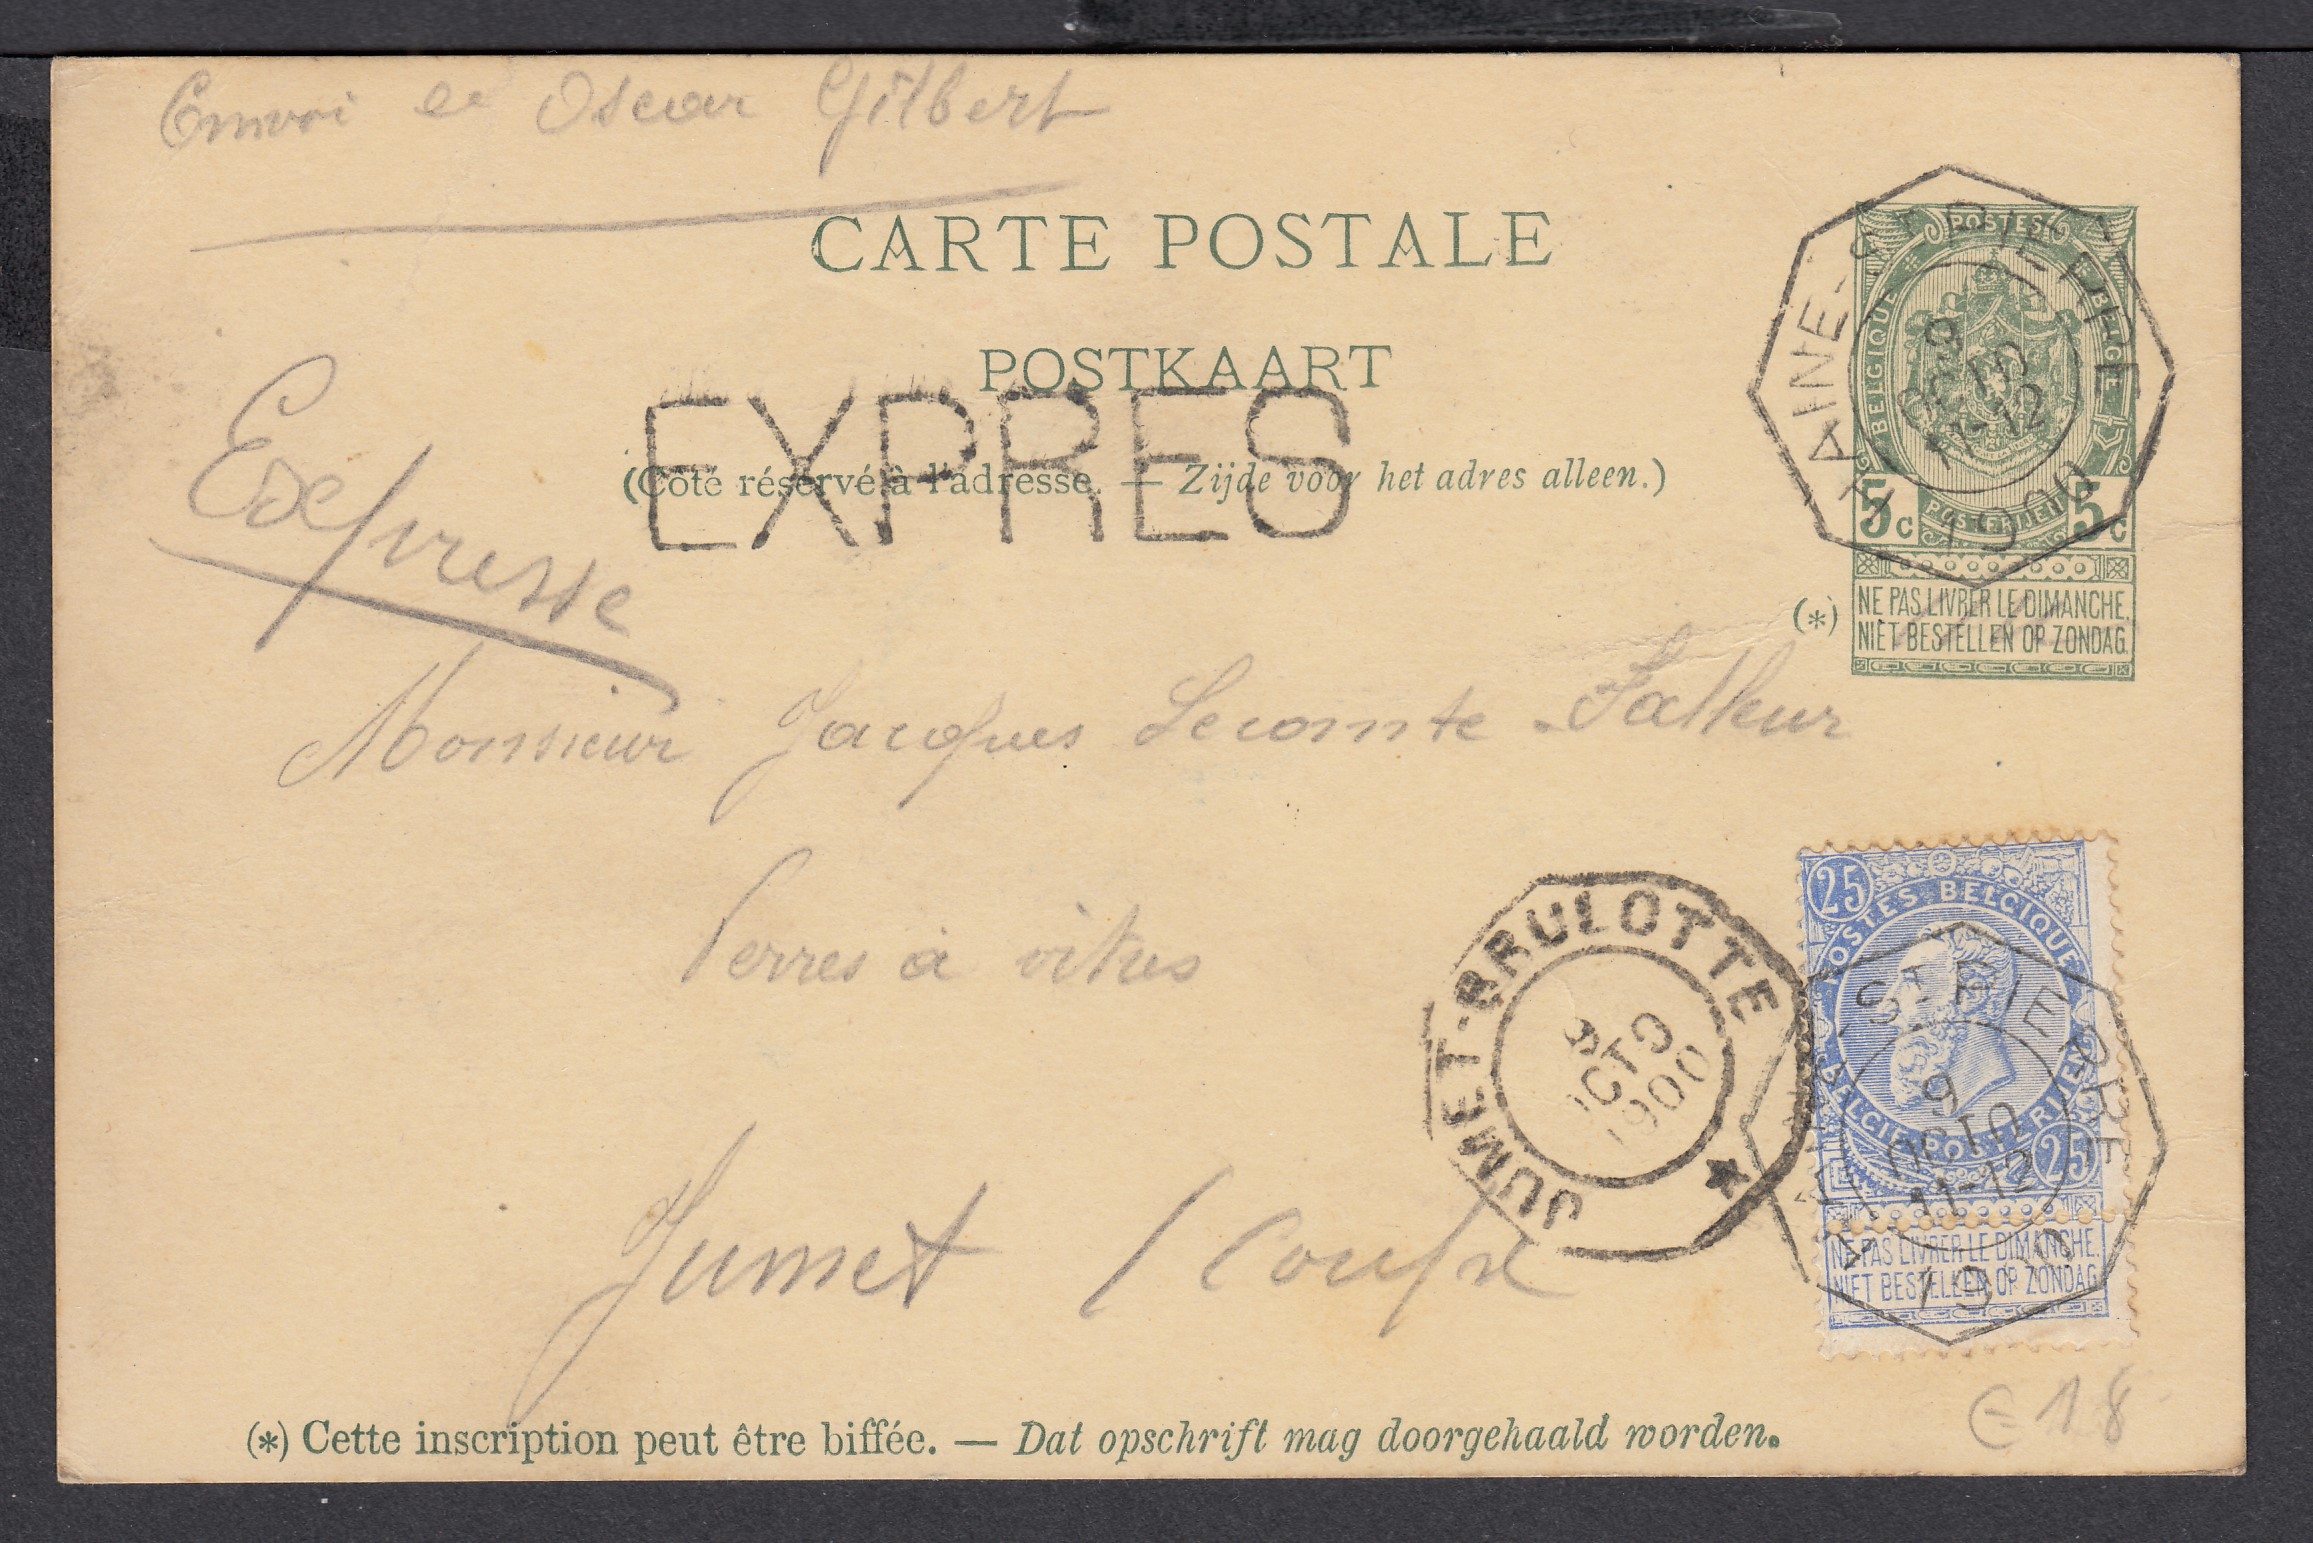 Envoi de Oscar Gilbert
CARTE POSTALE
POSTKAART
EXPRES
(Côté réservé à l'adresse. — Zijde voor het adres alleen.)
Expresse
POSTES
BELGIQUE BELGIË
POSTERIJEN
5c 5c
(*) NE PAS LIVRER LE DIMANCHE.
NIET BESTELLEN OP ZONDAG.
HAINE-ST-PIERRE
9
OCTO
11-12
1900
Monsieur Jacques Lecomte-Falleur
Verres à vitres
Jumet / Coupe
JUMET-BRULOTTE
9
OCTO
1900
25
POSTES BELGIQUE
BELGIE POSTERIJEN
25
NE PAS LIVRER LE DIMANCHE.
NIET BESTELLEN OP ZONDAG.
HAINE-ST-PIERRE
9
OCTO
11-12
1900
(*) Cette inscription peut être biffée. — Dat opschrift mag doorgehaald worden.
€ 18